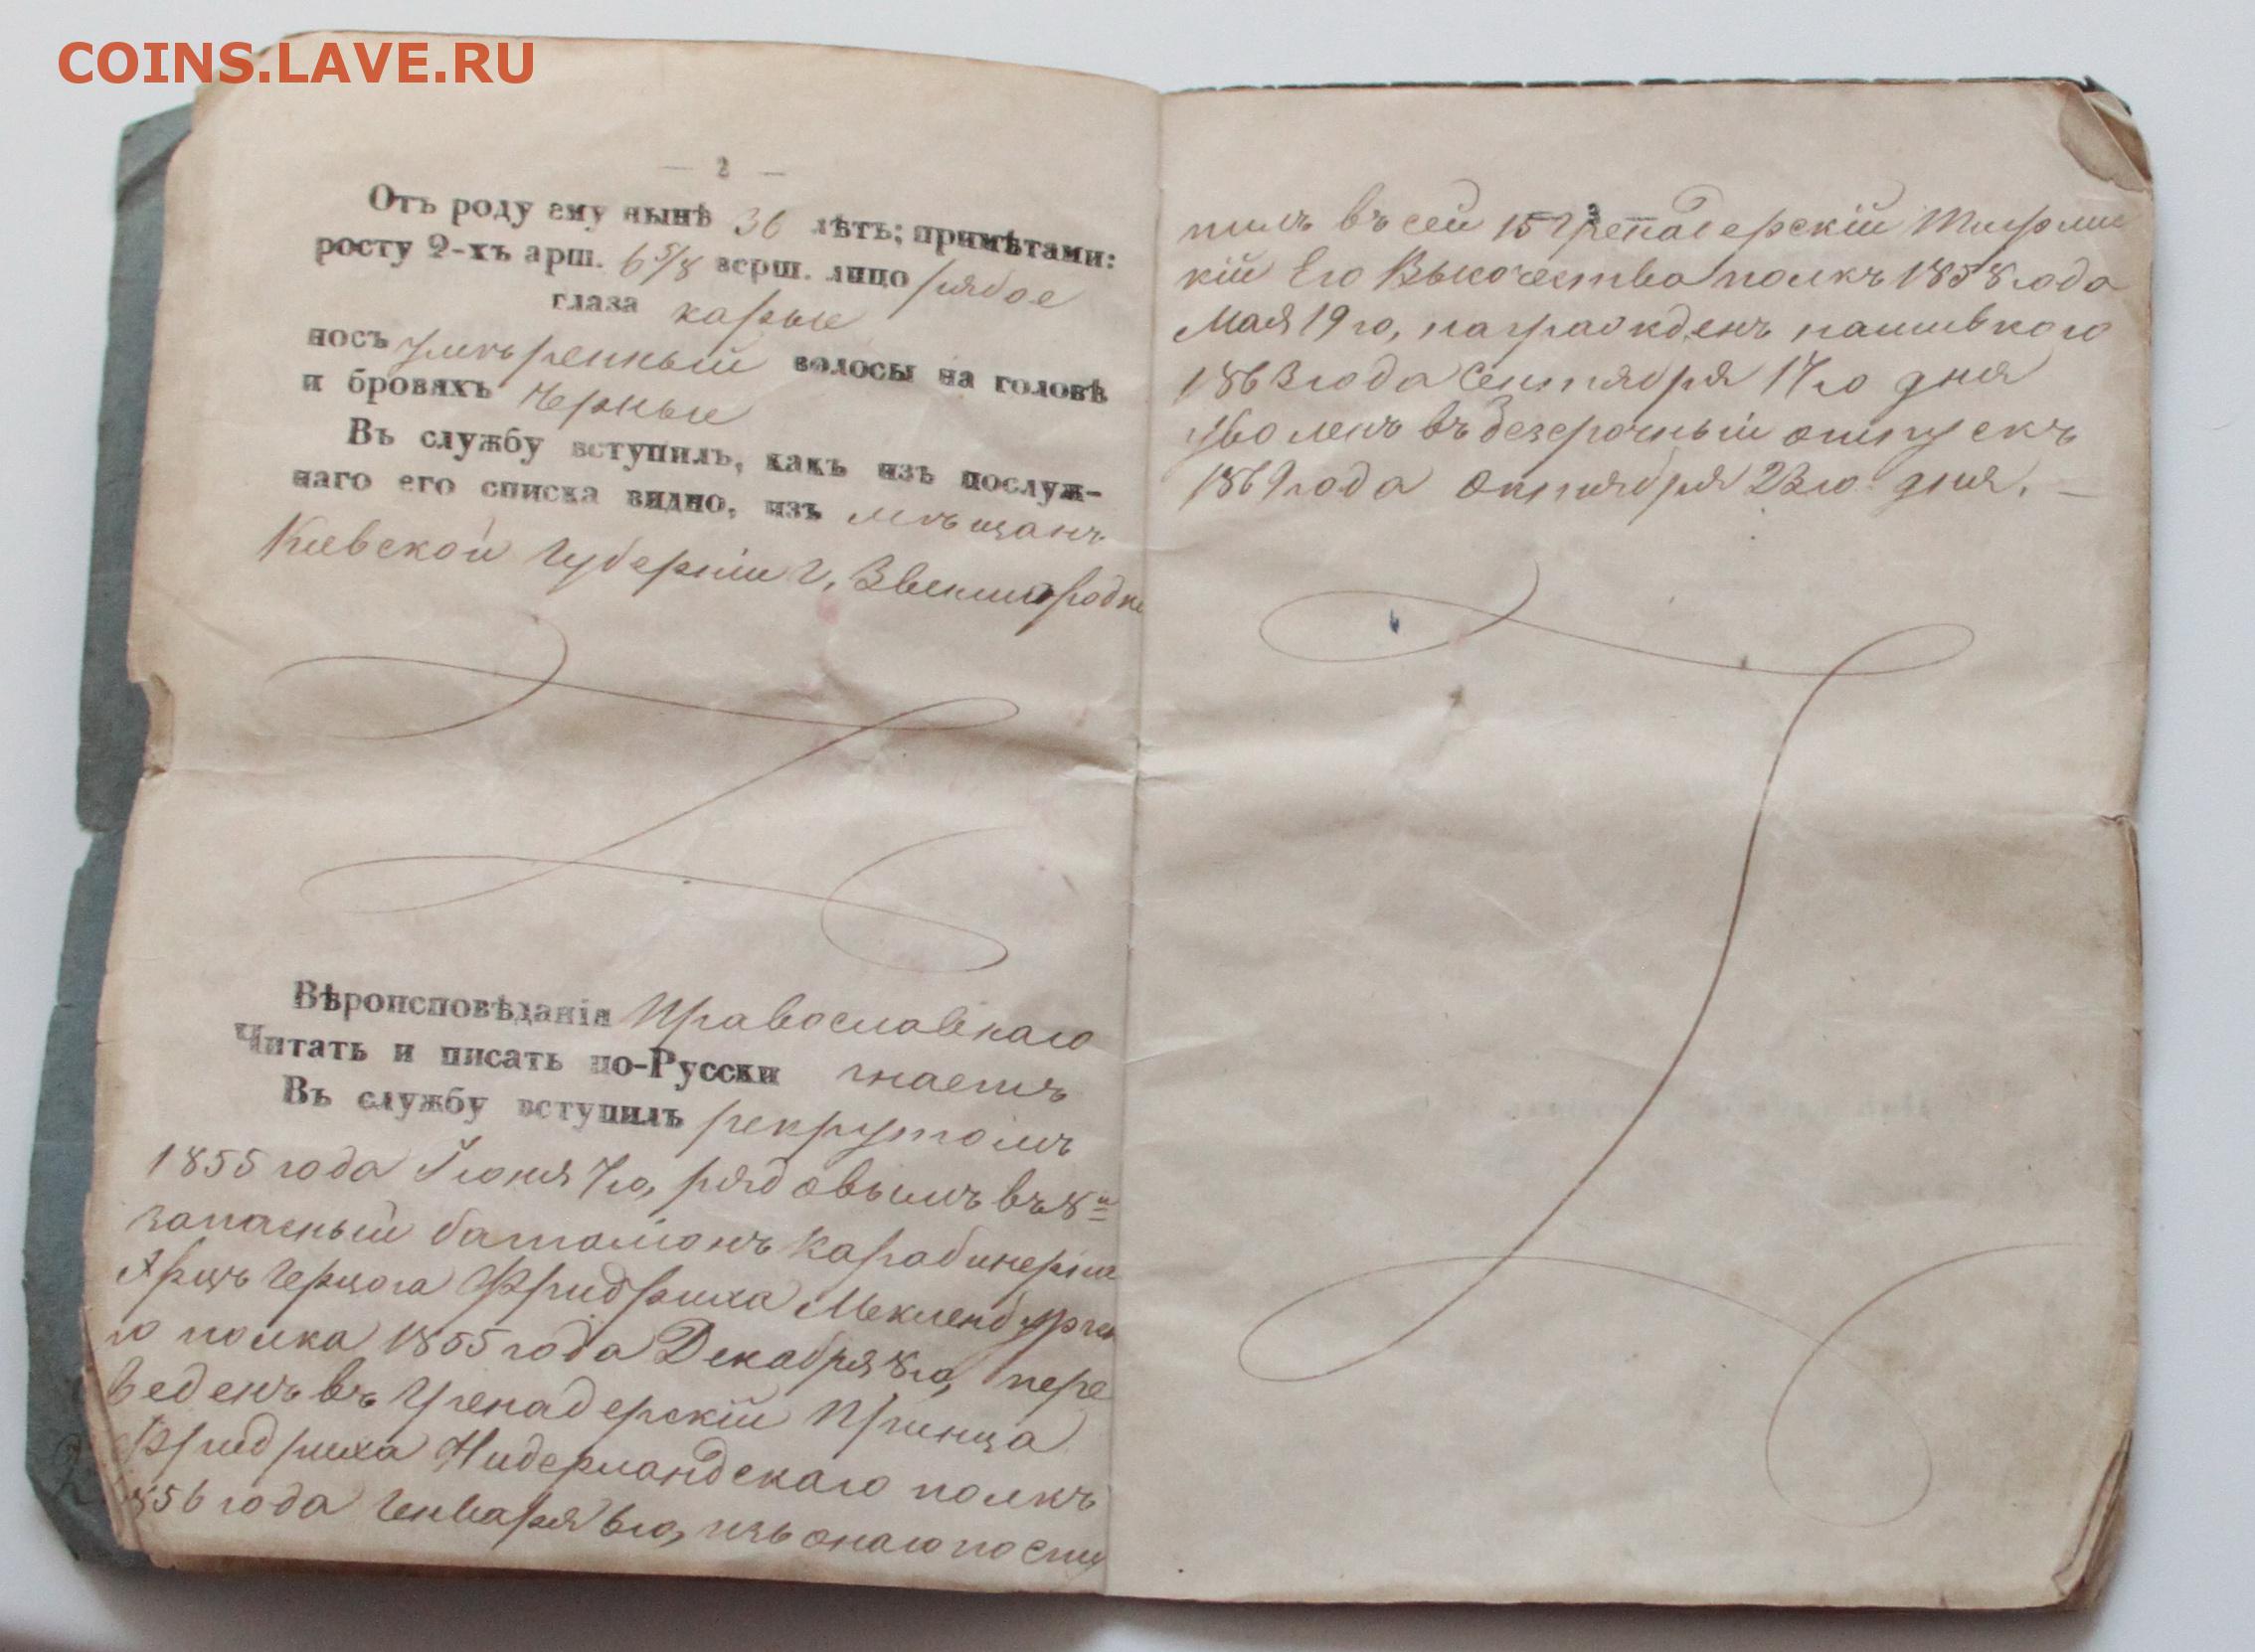 COINS.LAVE.RU
— 2 —
Отъ роду ему нынѣ 36 лѣтъ; примѣтами:
росту 2-хъ арш. 6 5/8 верш. лицо рябое
глаза карые
носъ умѣренный волосы на головѣ
и бровяхъ черные
Въ службу вступилъ, какъ изъ послуж-
наго его списка видно, изъ мѣщанъ
Кіевской Губерніи г. Звенигородки
Вѣроисповѣданія Православнаго
Читать и писать по-Русски знаетъ
Въ службу вступилъ рекрутомъ
1855 года Іюня 7го, рядовымъ въ 8й
запасный баталіонъ Карабинерна
Герцога Фридриха Мекленбургска
го полка 1855 года Декабря 8го, пере
веденъ въ Гренадерскій Принца
Фридриха Нидерландскаго полкъ
1856 года Генваря 6го, изъ онаго посту
пилъ въ сей 15й Гренадерскій Тифлис
кій Его Высочества полкъ 1858 года
Мая 19го, награжденъ нашивкою
1863 года Сентября 17го дня
уволенъ въ безсрочный отпускъ
1869 года Октября 23го дня. —